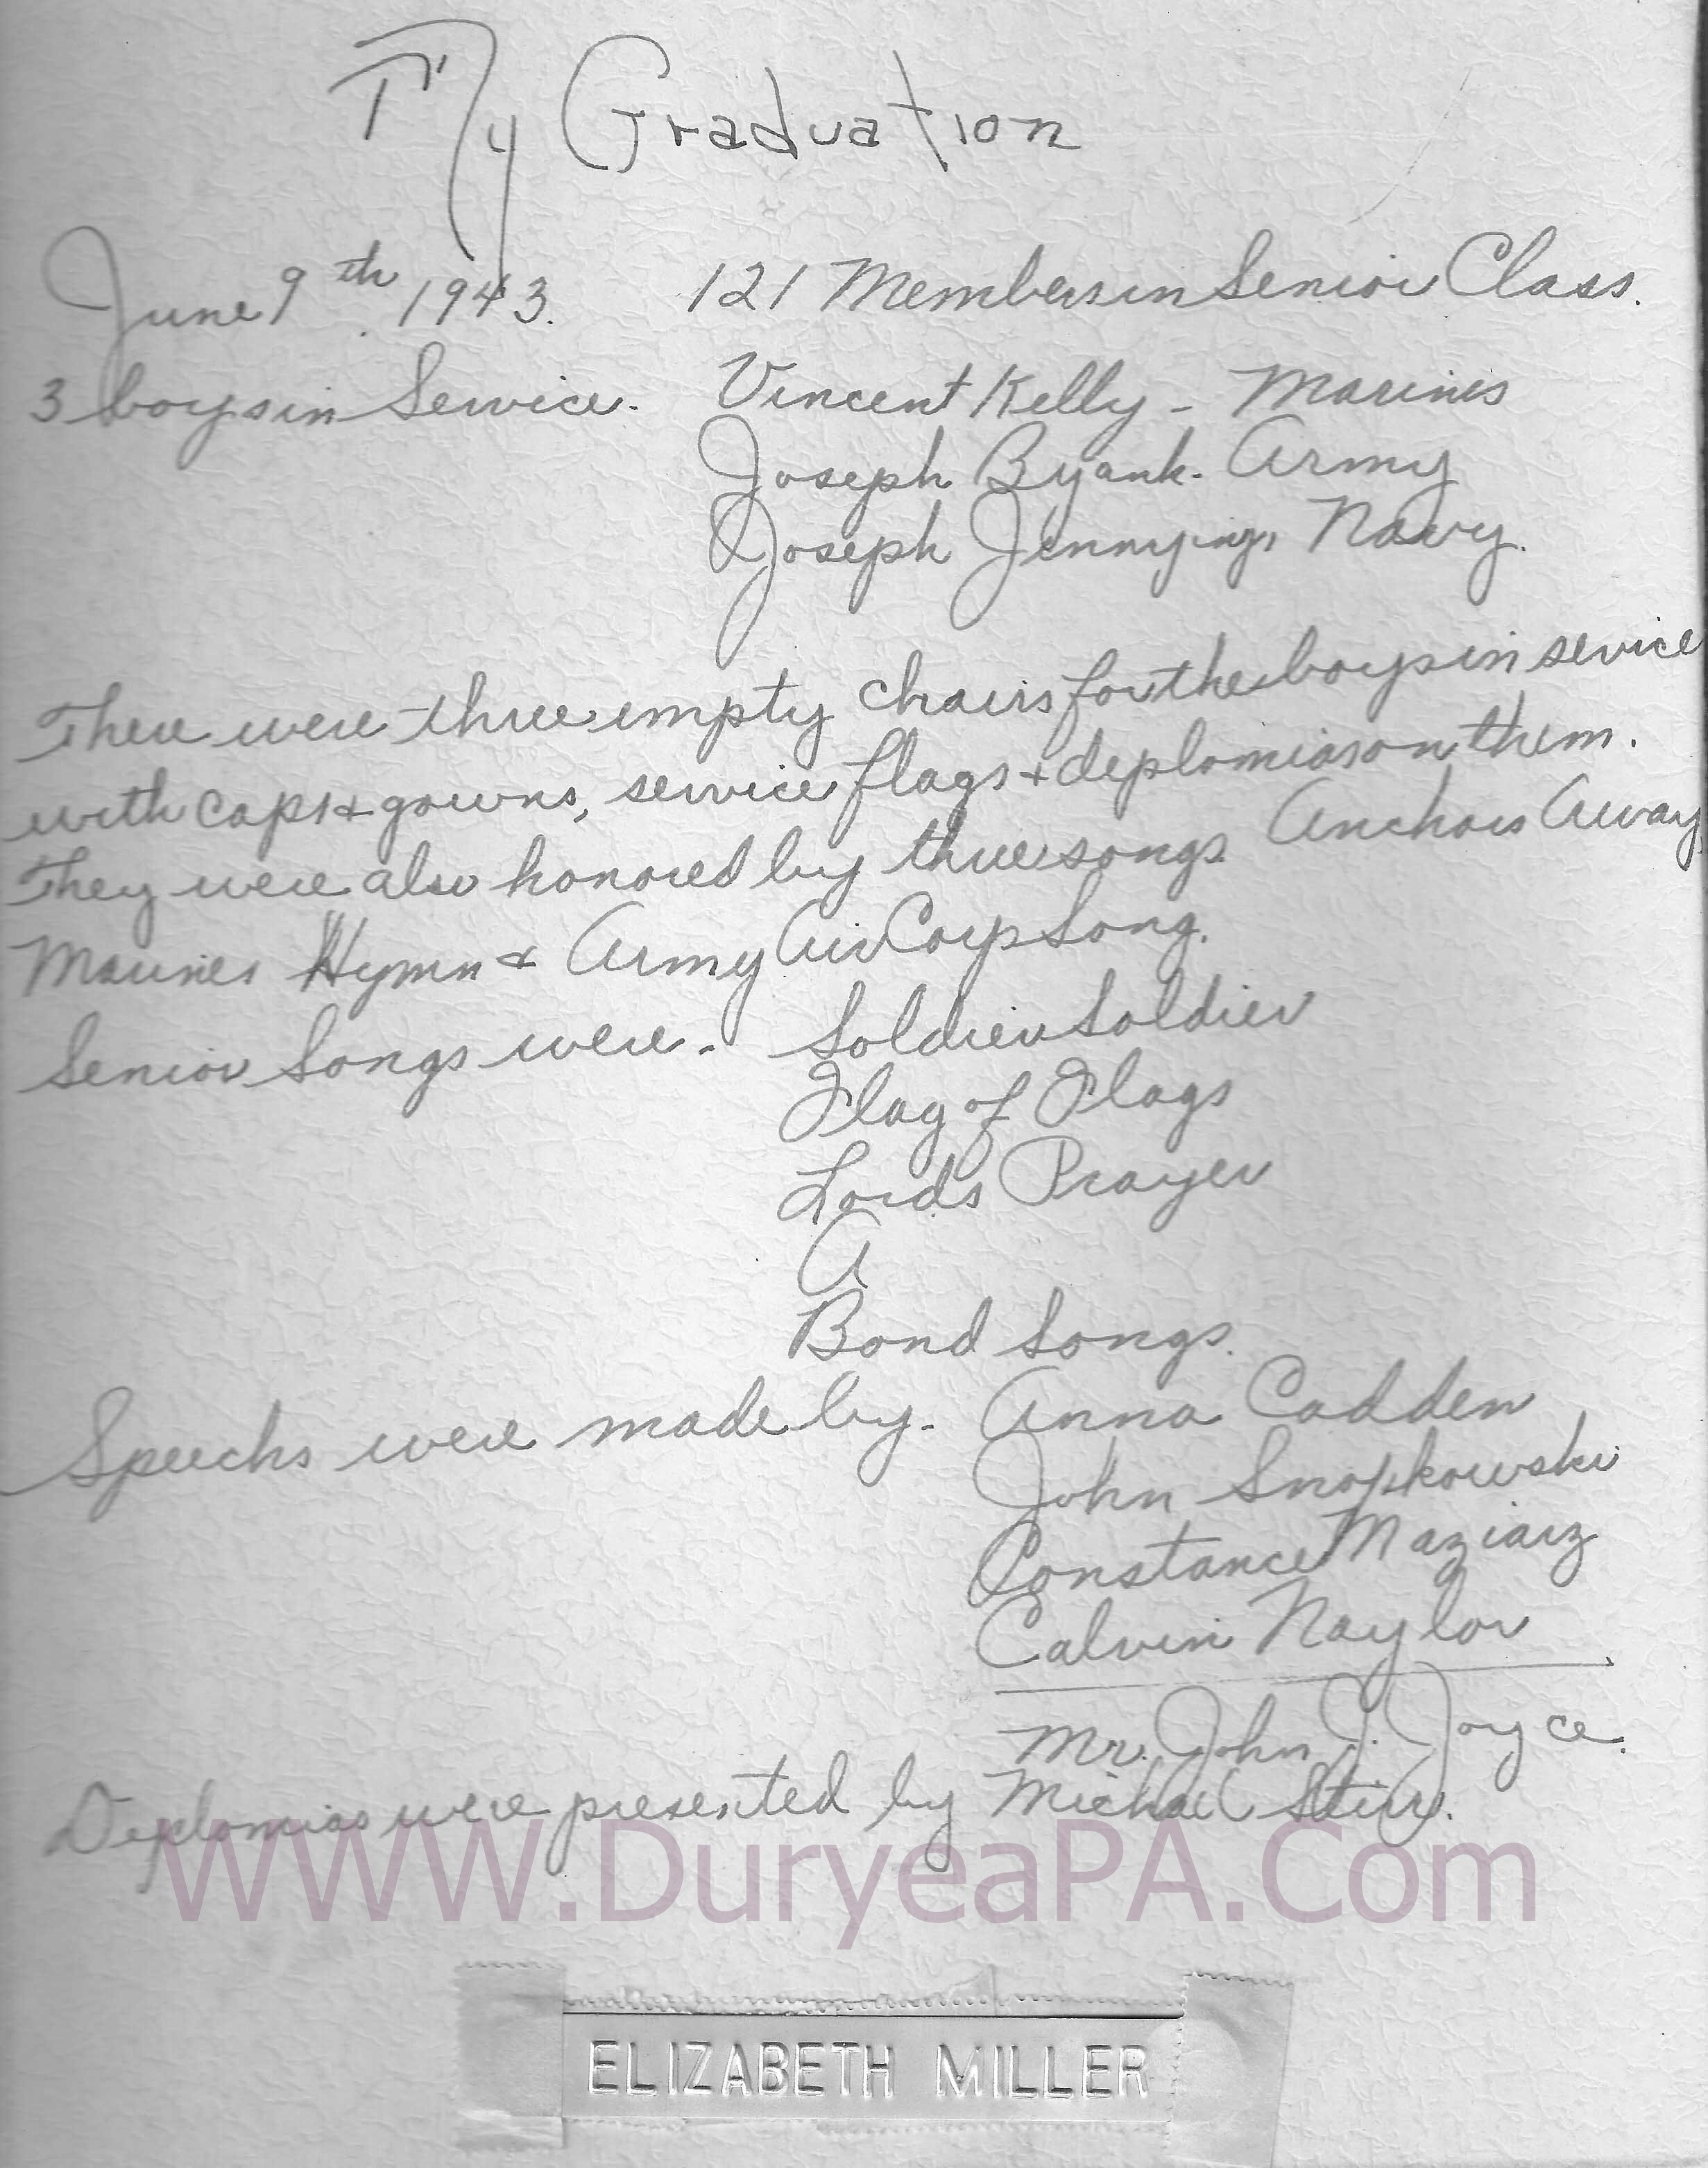 My Graduation
June 9th 1943. 121 Members in Senior Class.
3 boys in Service. Vincent Kelly - Marines
Joseph Byank - Army
Joseph Jennyings Navy.
There were three empty chairs for the boys in sevice
with caps & gowns, service flags & deplomias on them.
They were also honored by three songs Anchors Away
Marines Hymn & Army Air Corp Song.
Senior Songs were - Soldier Soldier
Flag of Flags
Lords Prayer
A
Bond Songs.
Speechs were made by - Anna Cadden
John Snopkowski
Constance Maziarz
Calvin Naylor
Mr. John J. Joyce.
Deplomias were presented by Michael Steir.
WWW.DuryeaPA.Com
ELIZABETH MILLER